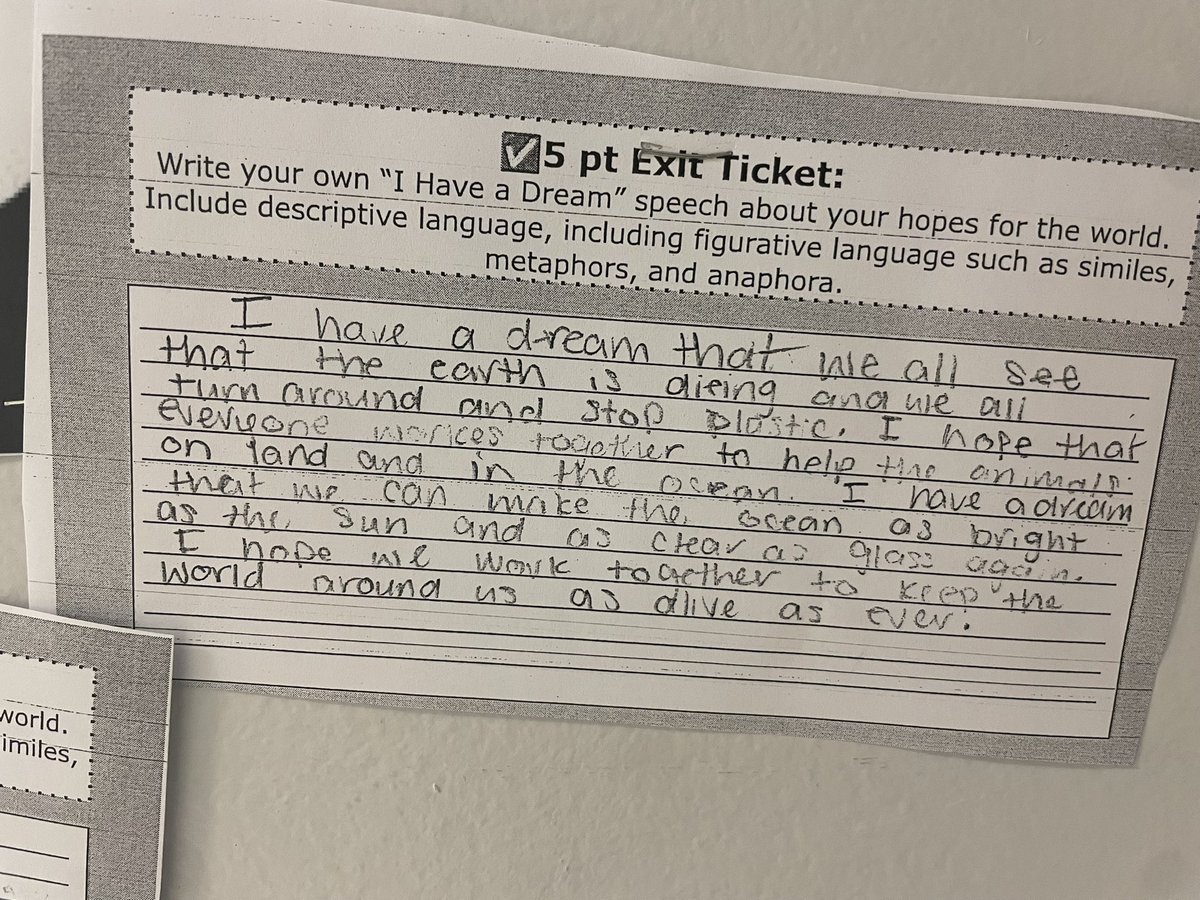 ✓5 pt Exit Ticket:
Write your own “I Have a Dream” speech about your hopes for the world.
Include descriptive language, including figurative language such as similes,
metaphors, and anaphora.
I have a dream that we all see
that the earth is dieing and we all
turn around and stop plastic. I hope that
everyone workes together to help the animals
on land and in the ocean. I have a dream
that we can make the ocean as bright
as the sun and as clear as glass again.
I hope we work together to keep the
world around us as alive as ever.
world.
imiles,